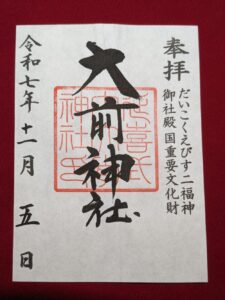 奉拝
だいこくえびす二福神
御社殿国重要文化財
大前神社
令和七年十一月五日